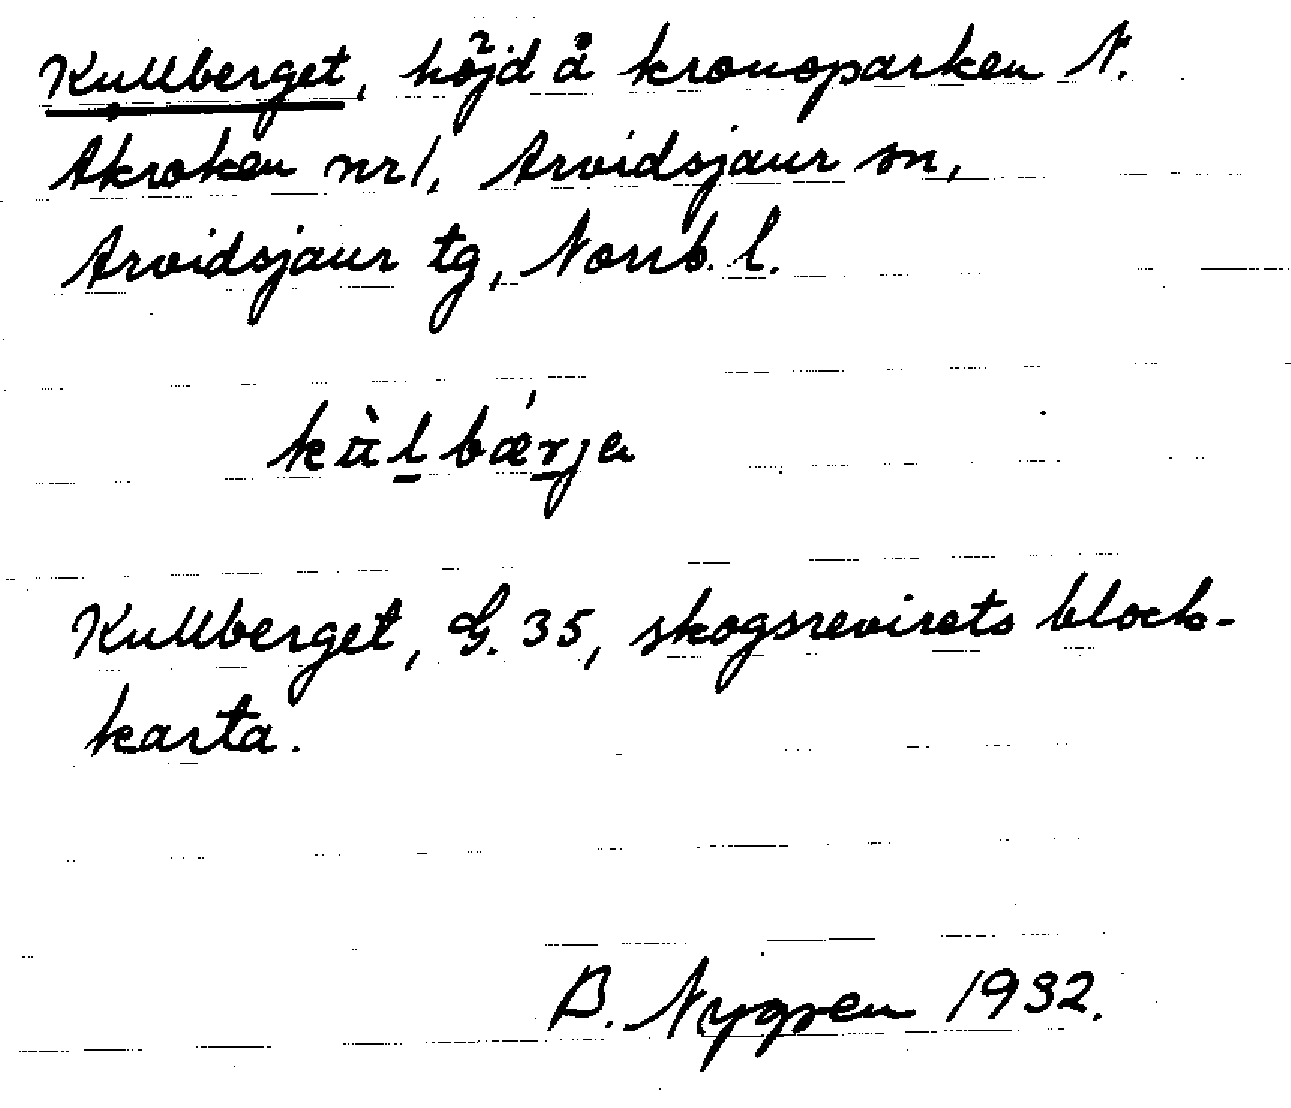 Kullberget, höjd å kronoparken N.
Akroken nr 1, Arvidsjaur sn,
Arvidsjaur tg, Norrb. l.
kùlbǽrja
Kullberget, G. 35, skogsrevirets block-
karta.
B. Nygren 1932.